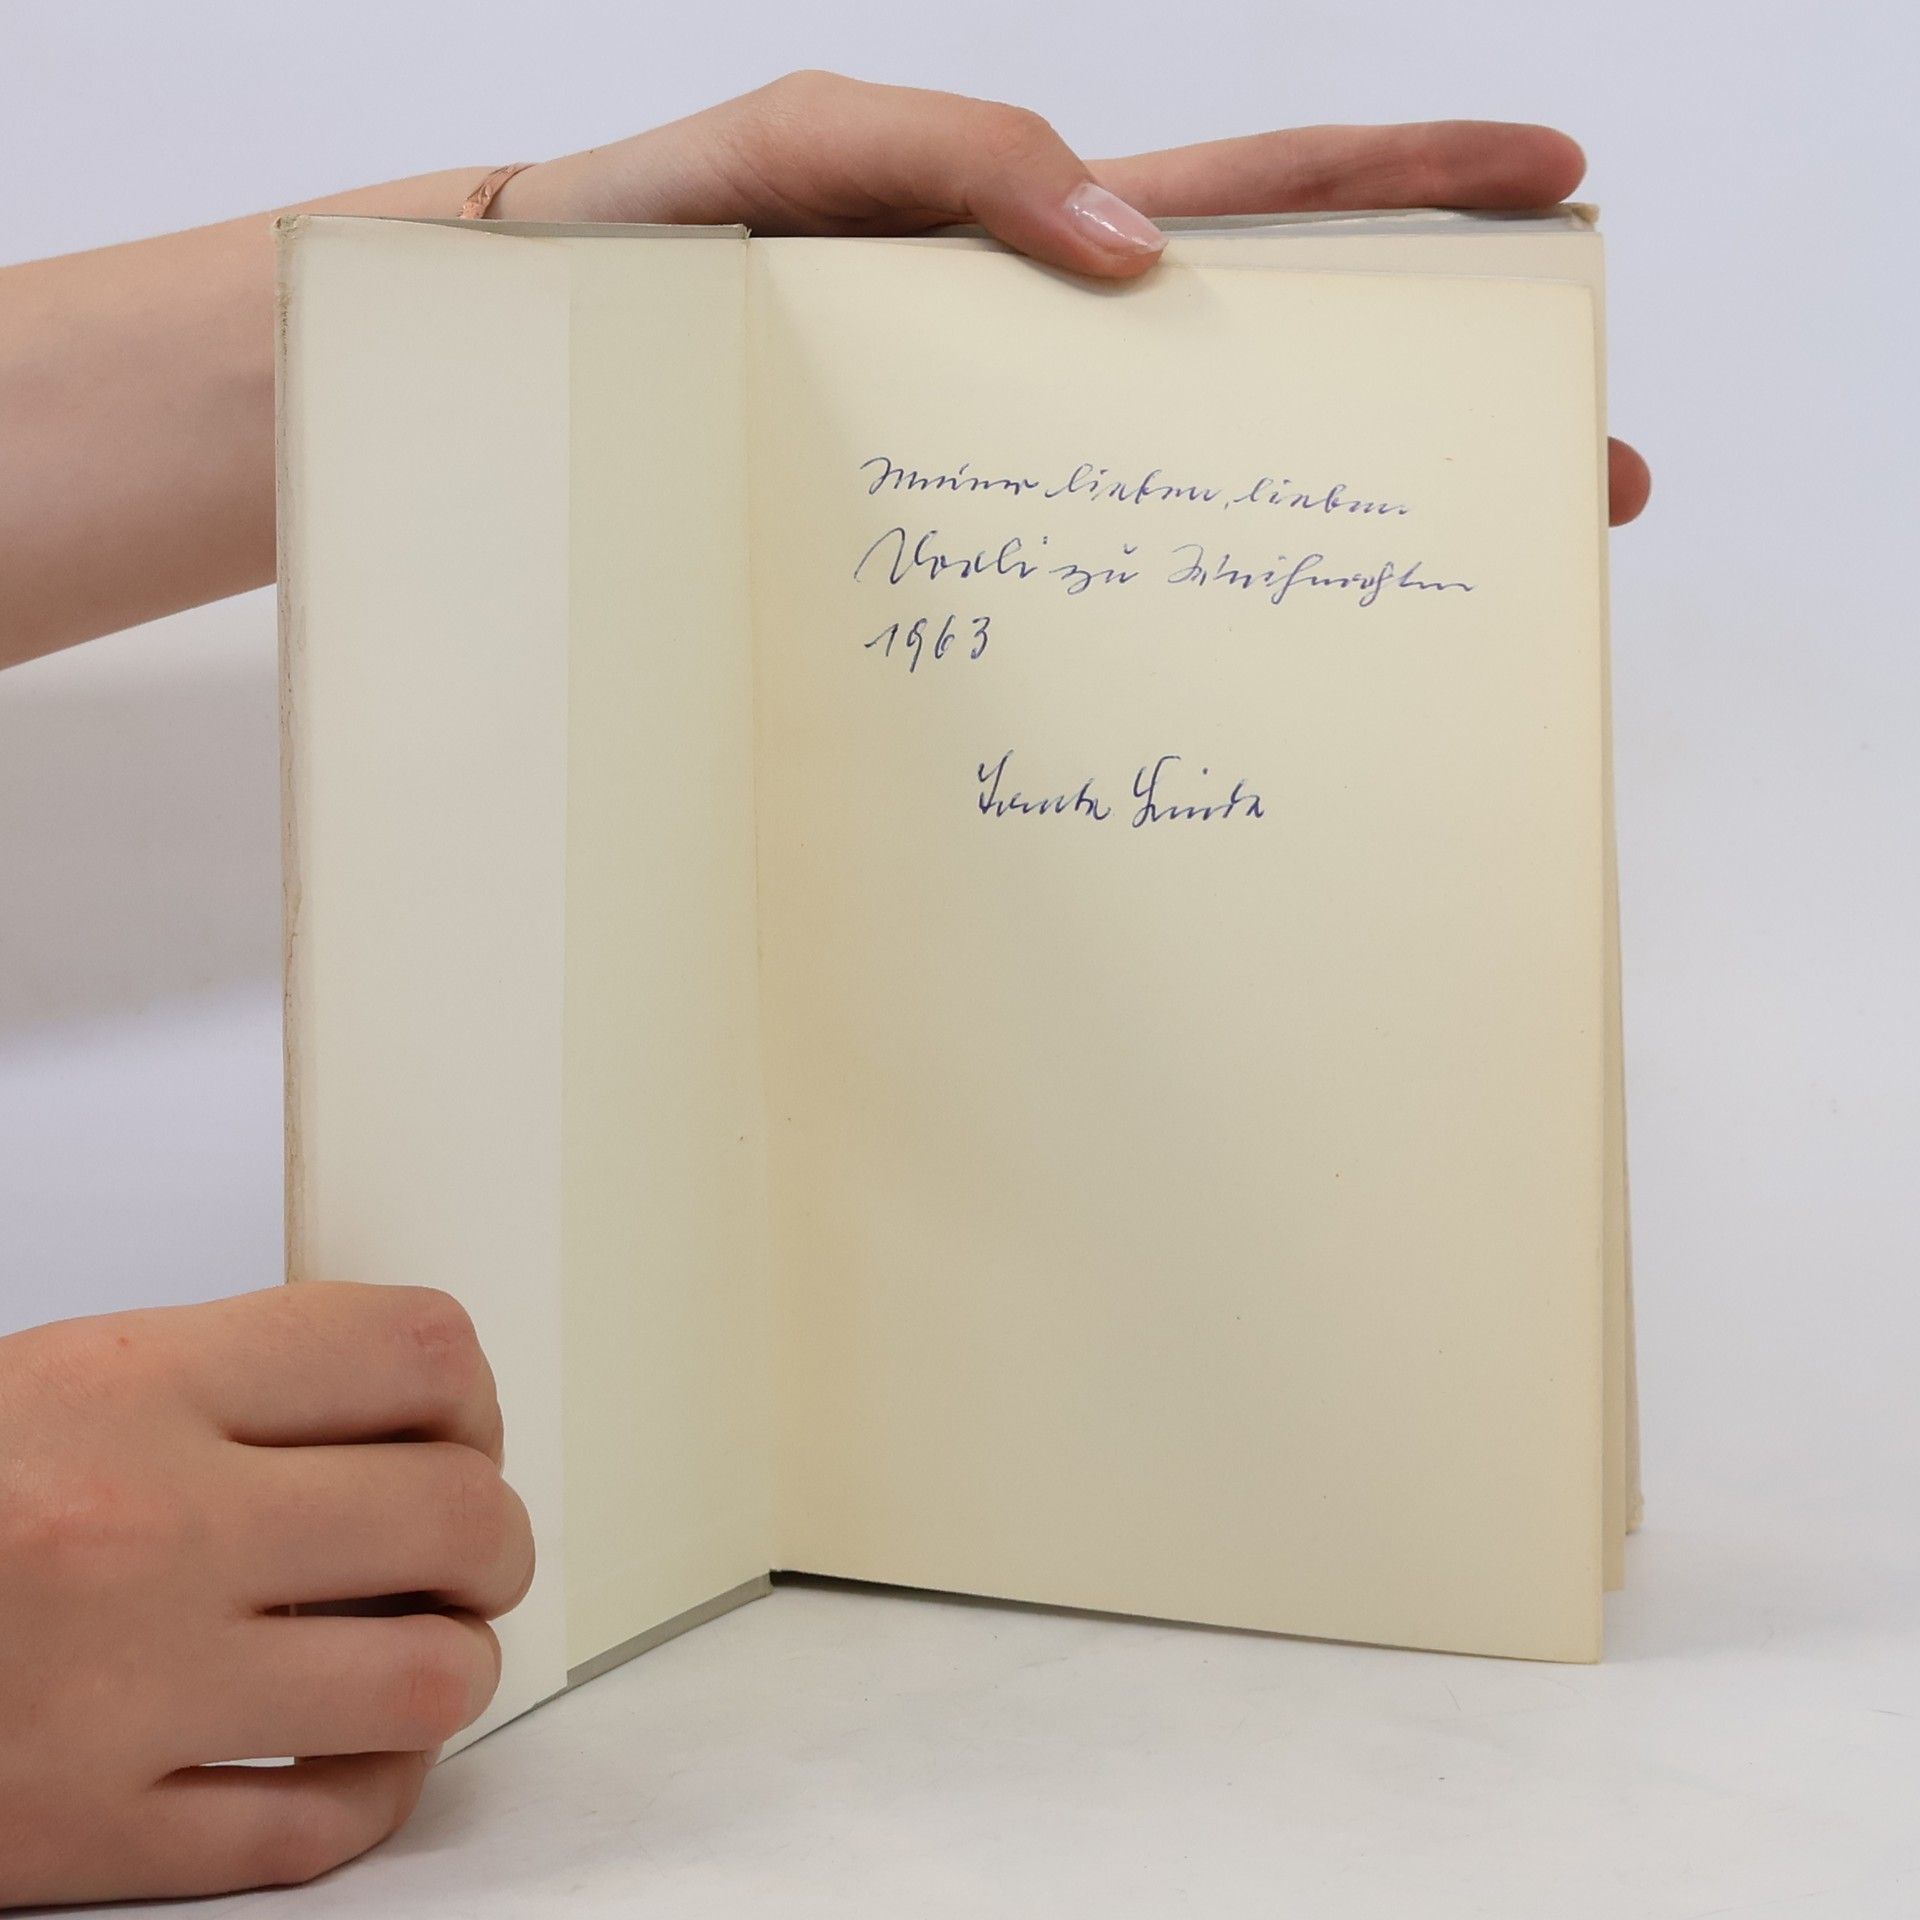 Meiner lieben, lieben
zu Weihnachten
1963
Tante Linda